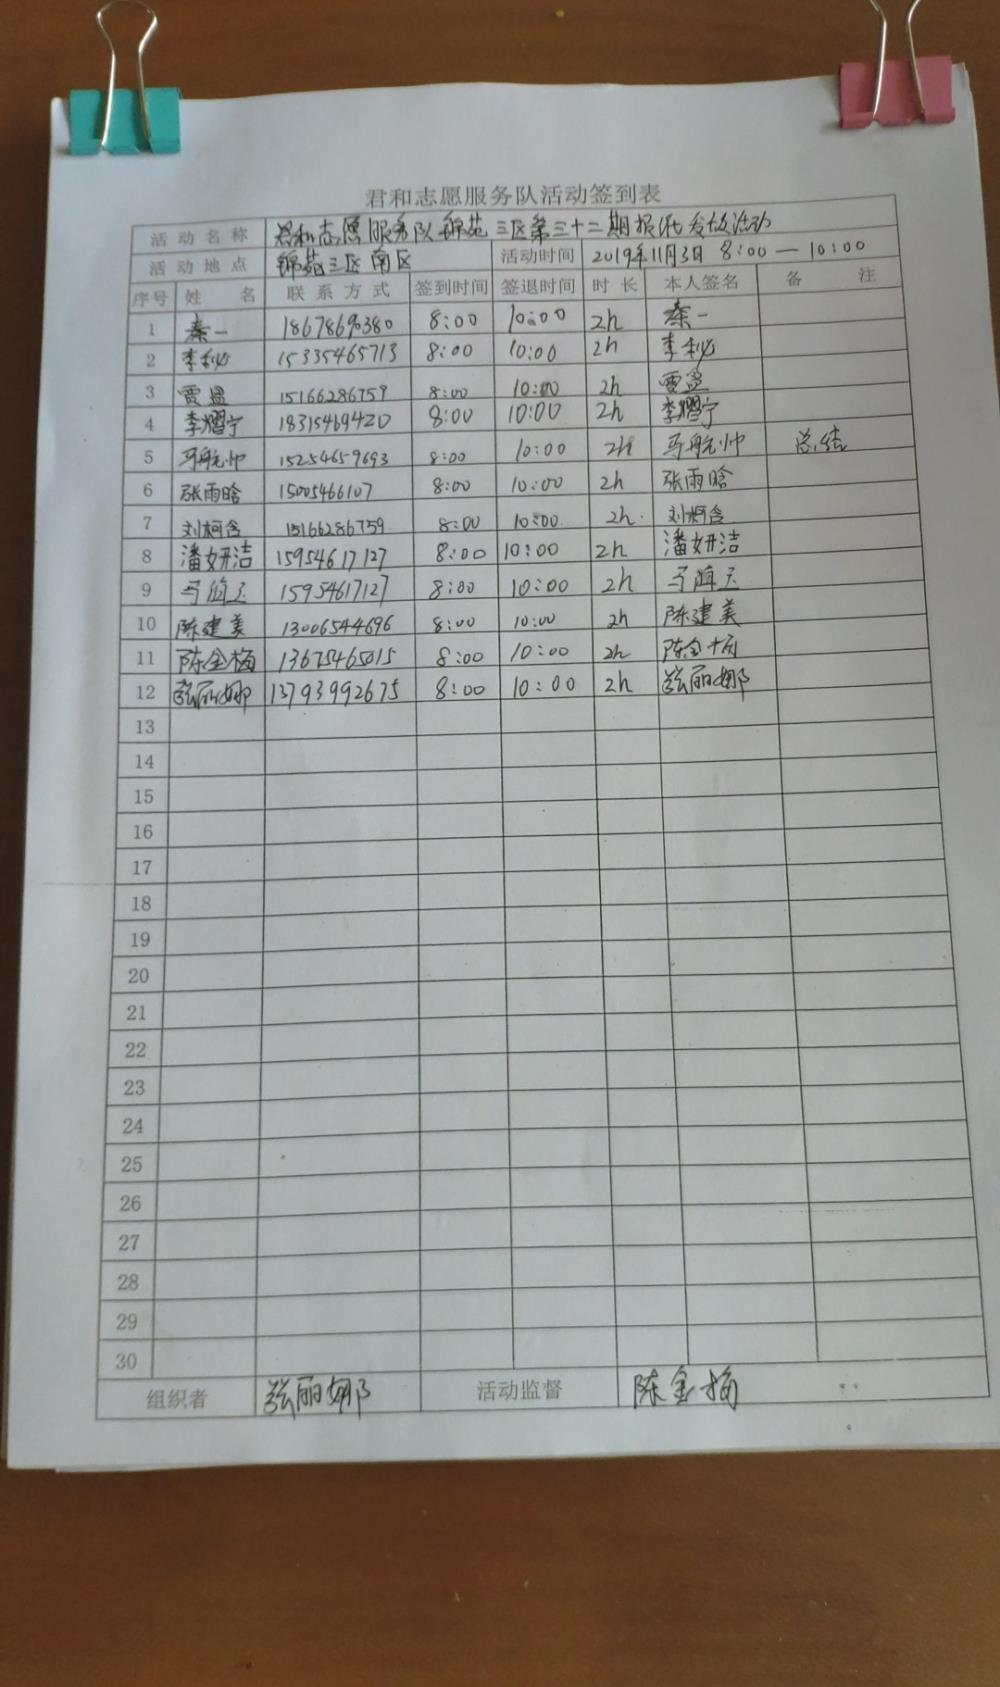 君和志愿服务队活动签到表
活动名称 君和志愿服务队锦苑三区第三十二期报纸发放活动
活动地点 锦苑三区南区 活动时间 2019年11月3日 8:00—10:00
序号 姓名 联系方式 签到时间 签退时间 时长 本人签名 备注
1 秦一 18678690380 8:00 10:00 2h 秦一
2 李秘 15335465713 8:00 10:00 2h 李秘
3 贾盈 15166286759 8:00 10:00 2h 贾盈
4 李熠宁 18315469420 8:00 10:00 2h 李熠宁
5 马航帅 15254659693 8:00 10:00 2h 马航帅 总结
6 张雨晗 15005466107 8:00 10:00 2h 张雨晗
7 刘柯含 15166286759 8:00 10:00 2h 刘柯含
8 潘妍洁 15954617127 8:00 10:00 2h 潘妍洁
9 15954617127 8:00 10:00 2h
10 陈建美 13006544696 8:00 10:00 2h 陈建美
11 陈金梅 13675465015 8:00 10:00 2h 陈金梅
12 张丽娜 13793992675 8:00 10:00 2h 张丽娜
13
14
15
16
17
18
19
20
21
22
23
24
25
26
27
28
29
30
组织者 张丽娜 活动监督 陈金梅